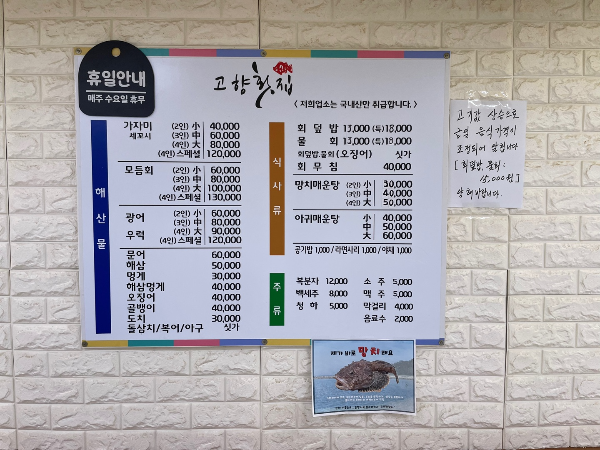 휴일안내
매주 수요일 휴무
고향횟집
< 저희업소는 국내산만 취급합니다. >
해산물
가자미 (2인) 小 40,000
세꼬시 (3인) 中 60,000
(4인) 大 80,000
(4인) 스페셜 120,000
모듬회 (2인) 小 60,000
(3인) 中 80,000
(4인) 大 100,000
(4인) 스페셜 130,000
광어 (2인) 小 60,000
(3인) 中 80,000
우럭 (4인) 大 90,000
(4인) 스페셜 120,000
문어 60,000
해삼 50,000
멍게 30,000
해삼멍게 40,000
오징어 40,000
골뱅이 40,000
도치 30,000
돌삼치/복어/아구 싯가
식사류
회덮밥 13,000 (특)18,000
물회 13,000 (특)18,000
회덮밥.물회(오징어) 싯가
회무침 40,000
망치매운탕 (2인) 小 30,000
(3인) 中 40,000
(4인) 大 50,000
아귀매운탕 小 40,000
中 50,000
大 60,000
공기밥 1,000 / 라면사리 1,000 / 야채 1,000
주류
복분자 12,000 소주 5,000
백세주 8,000 맥주 5,000
청하 5,000 막걸리 4,000
음료수 2,000
상승으로
음식가격이
조정되어 있습니다
[ 회덮밥, 물회 :
15,000원 ]
양해바랍니다.
제가 바로 망치예요